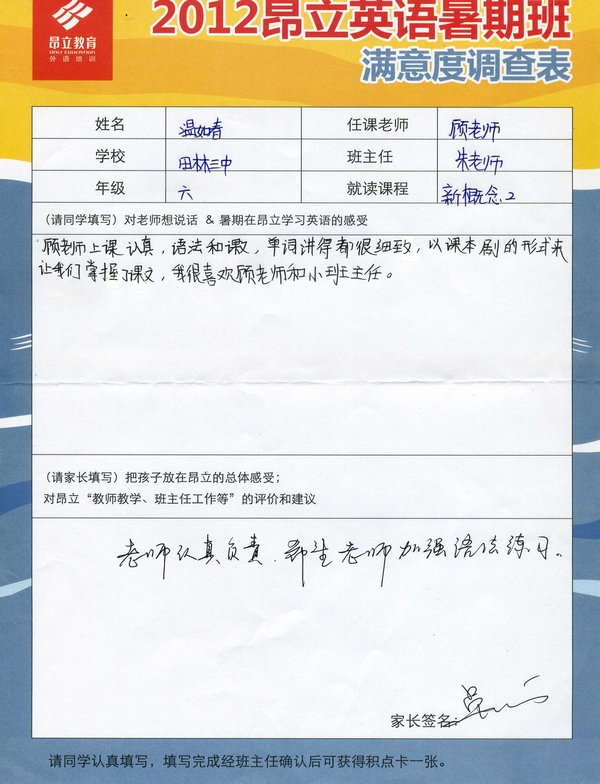 2012昂立英语暑期班
昂立教育
ONLY EDUCATION
外语培训
满意度调查表
姓名 温如春 任课老师 顾老师
学校 田林三中 班主任 朱老师
年级 六 就读课程 新概念2
(请同学填写)对老师想说话 & 暑期在昂立学习英语的感受
顾老师上课认真,语法和课文,单词讲得都很细致,以课本剧的形式来
让我们掌握了课文,我很喜欢顾老师和小班主任。
(请家长填写)把孩子放在昂立的总体感受;
对昂立“教师教学、班主任工作等”的评价和建议
老师认真负责.希望老师加强语法练习。
家长签名:
请同学认真填写,填写完成经班主任确认后可获得积点卡一张。